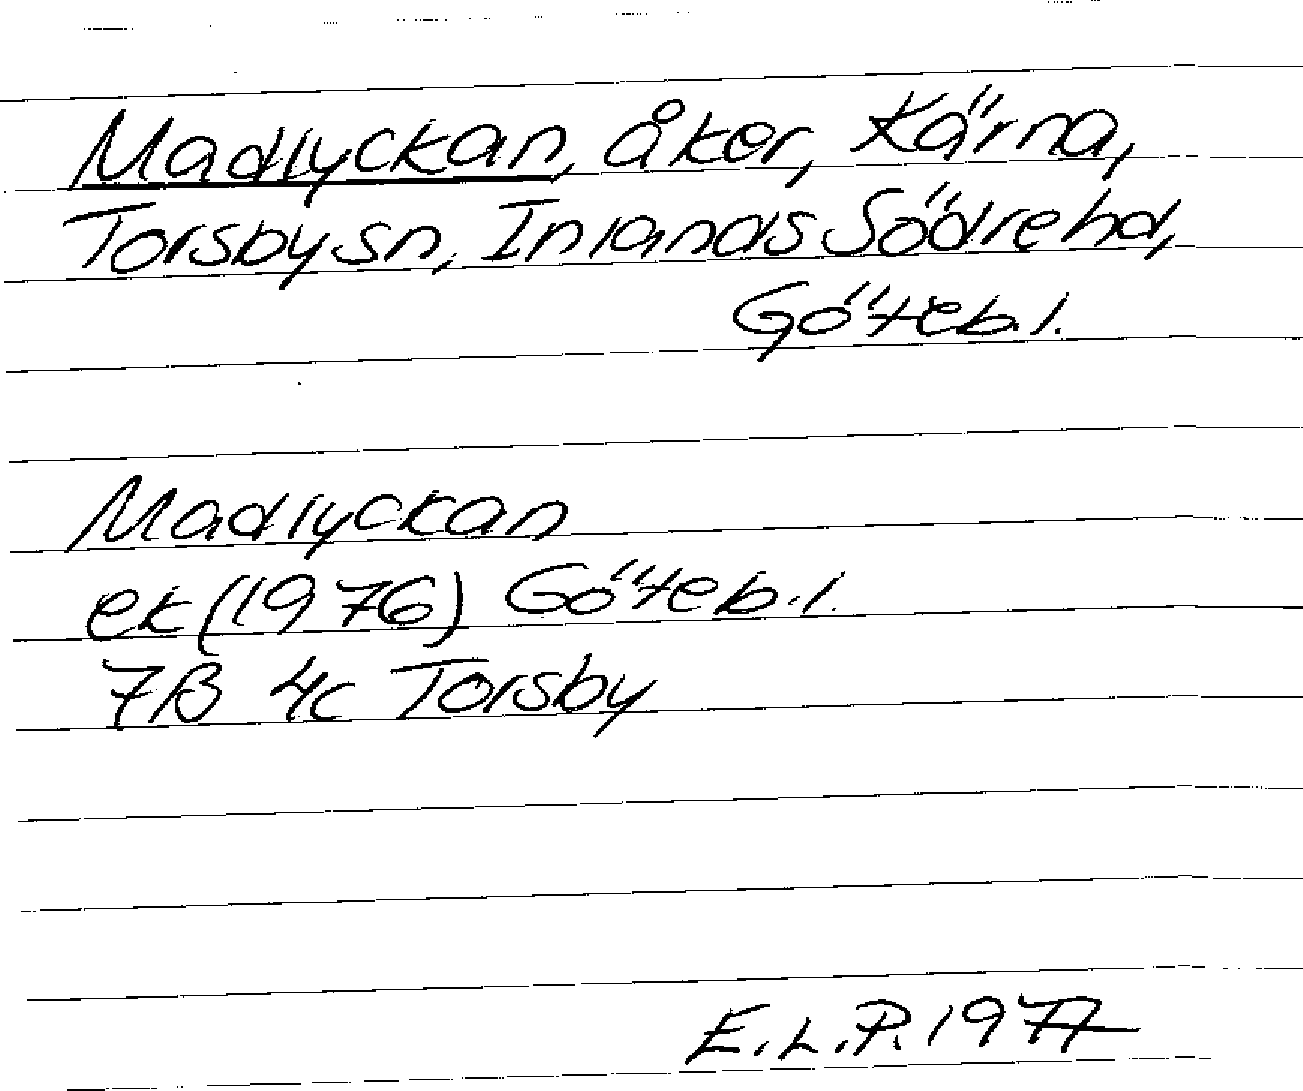 Madlyckan, åker, Kärna,
Torsby sn, Inlands Södre hd,
Göteb. l.
Madlyckan
ek (1976) Göteb. l.
7B 4c Torsby
E.L.P. 1977